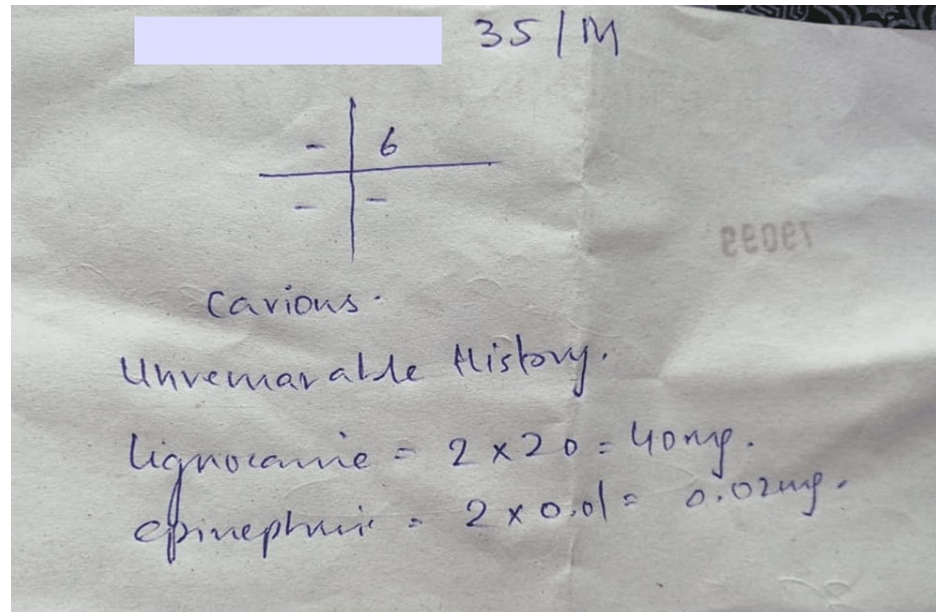 35/M
- | 6
- | -
Carious.
Unremarable History.
Lignocaine = 2 x 20 = 40mg.
epinephrine = 2 x 0.01 = 0.02mg.